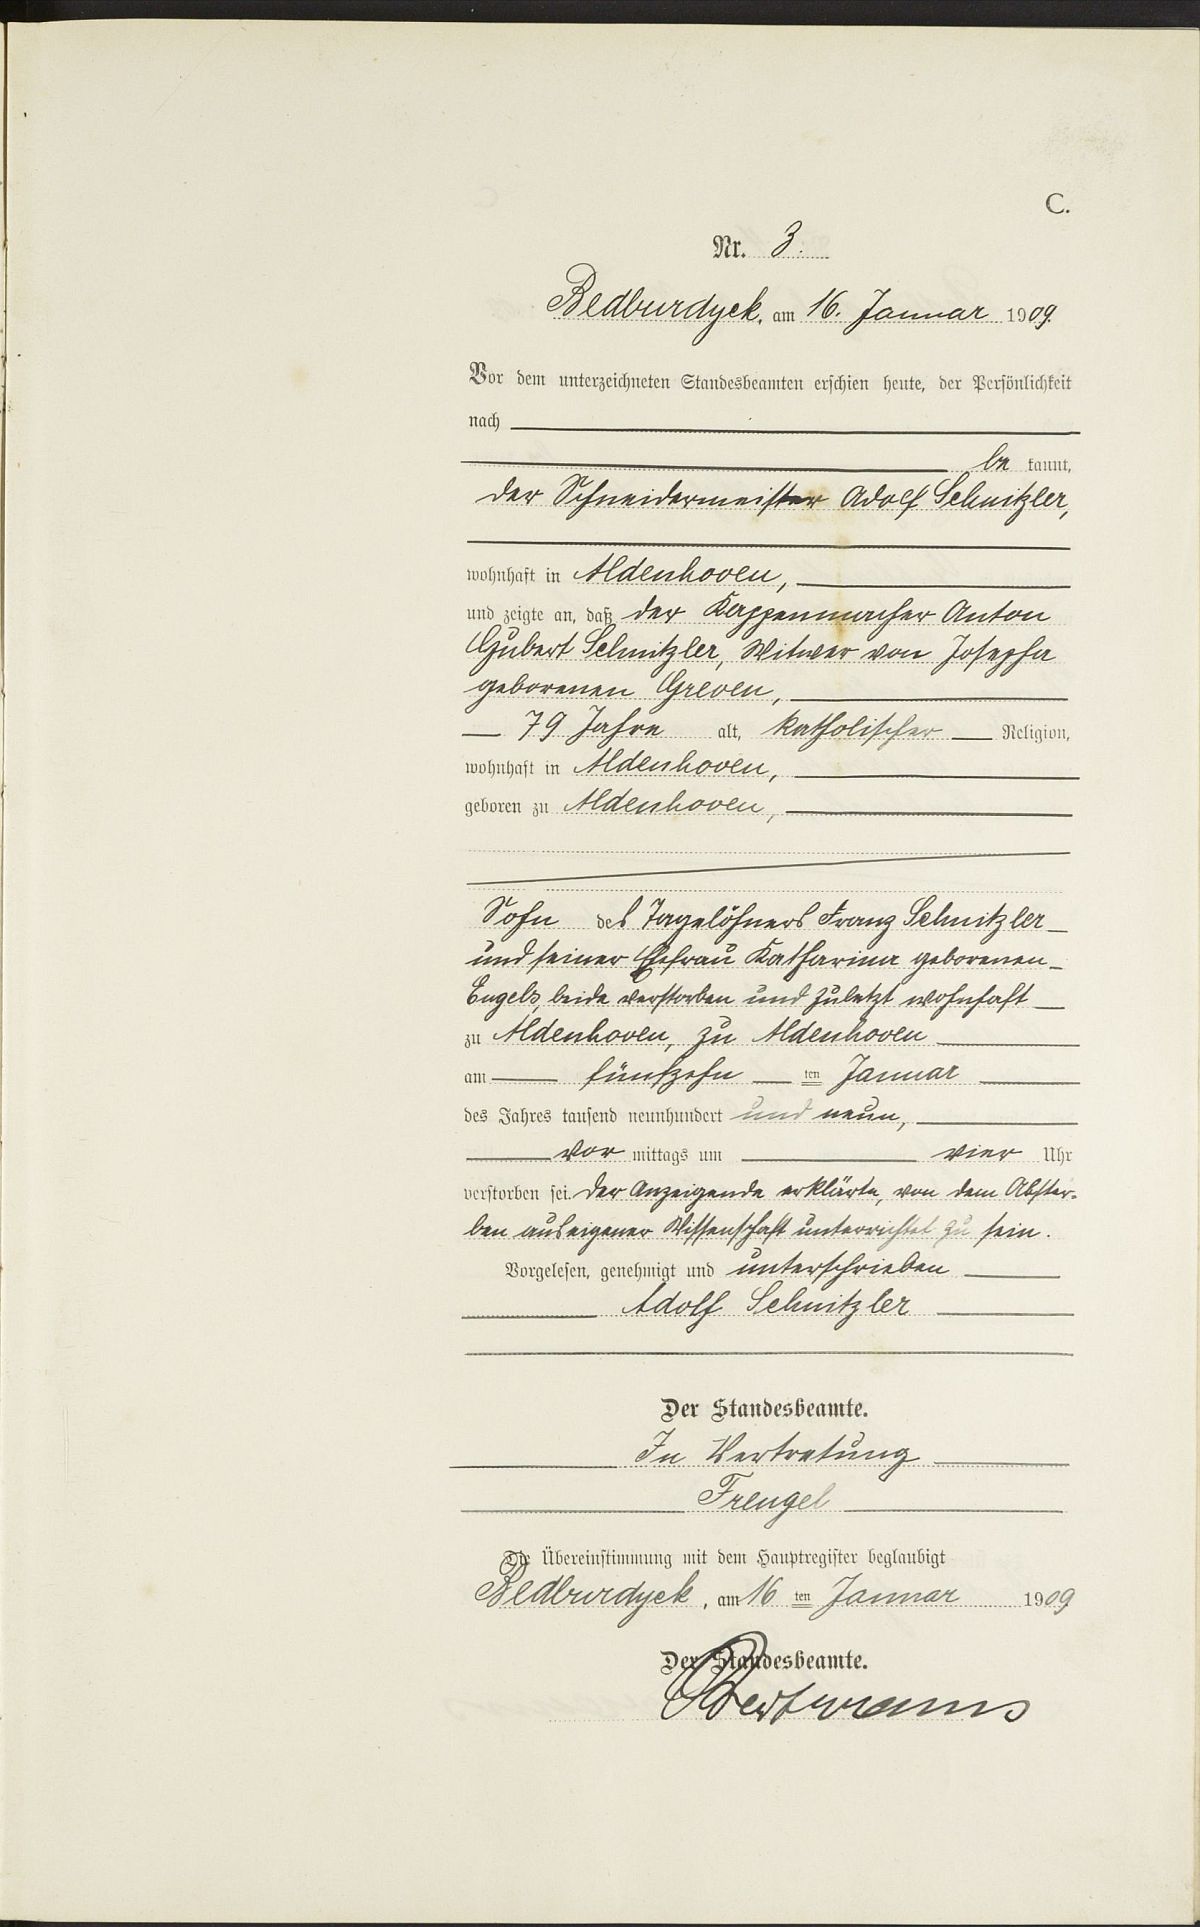 C.
Nr. 3.
Bedburdyck, am 16. Januar 1909.
Vor dem unterzeichneten Standesbeamten erschien heute, der Persönlichkeit
nach
be kannt,
der Schneidermeister Adolf Schnitzler,
wohnhaft in Aldenhoven,
und zeigte an, daß der Kappenmacher Anton
Hubert Schnitzler, Witwer von Josepha
geborenen Greven,
79 Jahre alt, katholischer Religion,
wohnhaft in Aldenhoven,
geboren zu Aldenhoven,
Sohn des Tagelöhners Franz Schnitzler
und seiner Ehefrau Katharina geborenen
Engels, beide verstorben und zuletzt wohnhaft
zu Aldenhoven, zu Aldenhoven
am fünfzehn ten Januar
des Jahres tausend neunhundert und neun,
vor mittags um vier Uhr
verstorben sei. Der Anzeigende erklärte, von dem Abster-
ben aus eigener Wissenschaft unterrichtet zu sein.
Vorgelesen, genehmigt und unterschrieben
Adolf Schnitzler
Der Standesbeamte.
In Vertretung
Frengel
Die Übereinstimmung mit dem Hauptregister beglaubigt
Bedburdyck, am 16 ten Januar 1909
Der Standesbeamte.